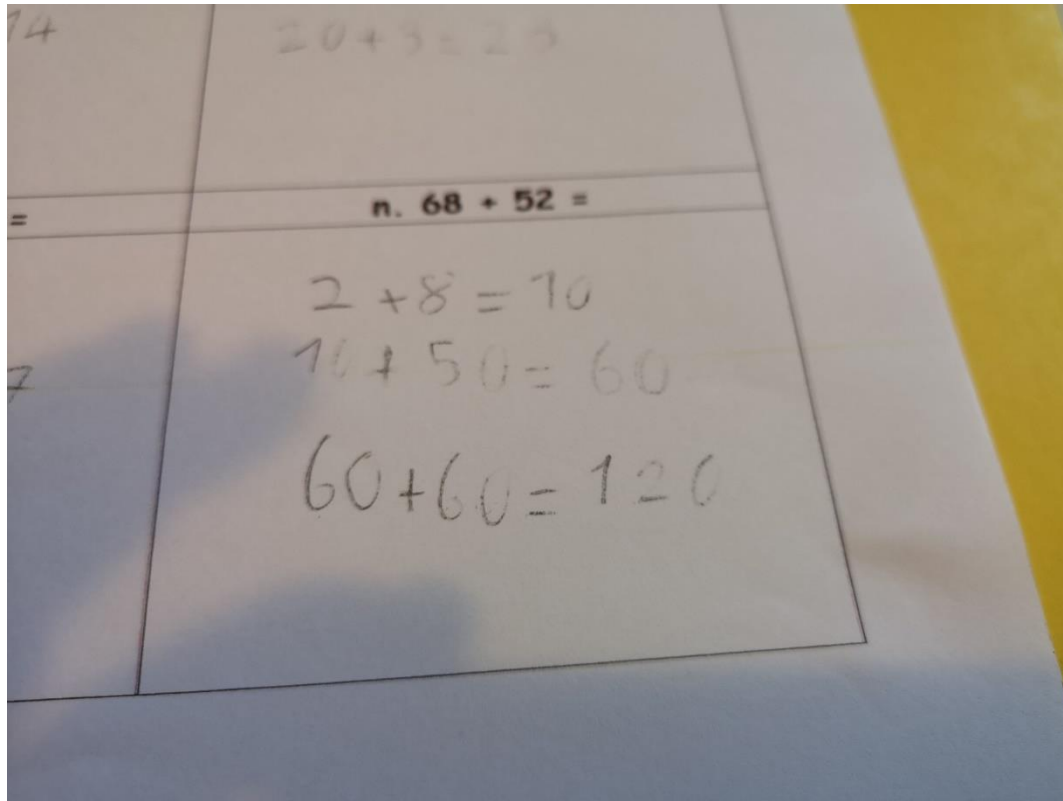 14
20+3=23
=
n. 68 + 52 =
2+8=10
10+50=60
7
60+60=120